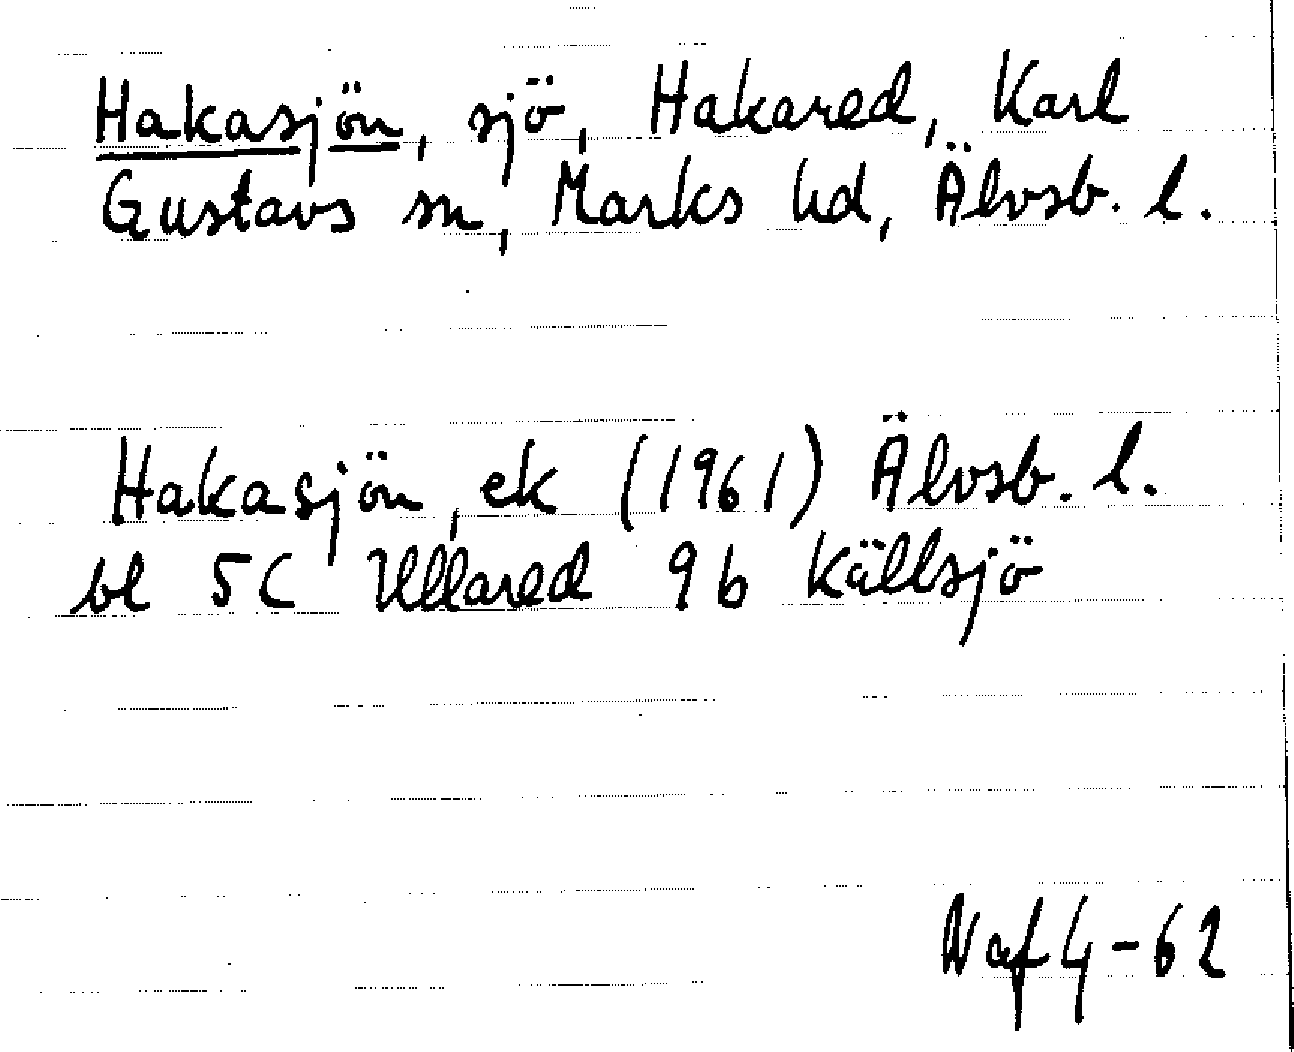 Hakasjön, sjö, Hakared, Karl
Gustavs sn, Marks hd, Älvsb. l.
Hakasjön, ek (1961) Älvsb. l.
bl 5C Ullared 9b Källsjö
Naf 4-62